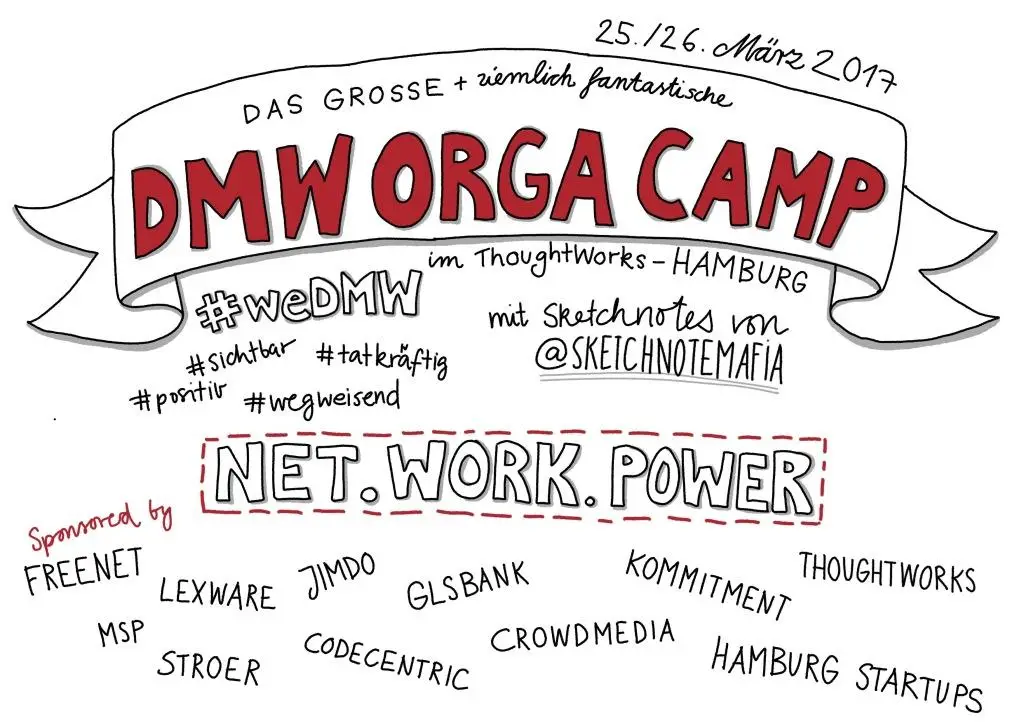 25./26. März 2017
DAS GROSSE + ziemlich fantastische
DMW ORGA CAMP
im ThoughtWorks - HAMBURG
#weDMW
mit Sketchnotes von
@SKETCHNOTEMAFIA
#sichtbar #tatkräftig
#positiv #wegweisend
NET.WORK.POWER
Sponsored by
FREENET LEXWARE JIMDO GLSBANK KOMMITMENT THOUGHTWORKS
MSP STROER CODECENTRIC CROWDMEDIA HAMBURG STARTUPS